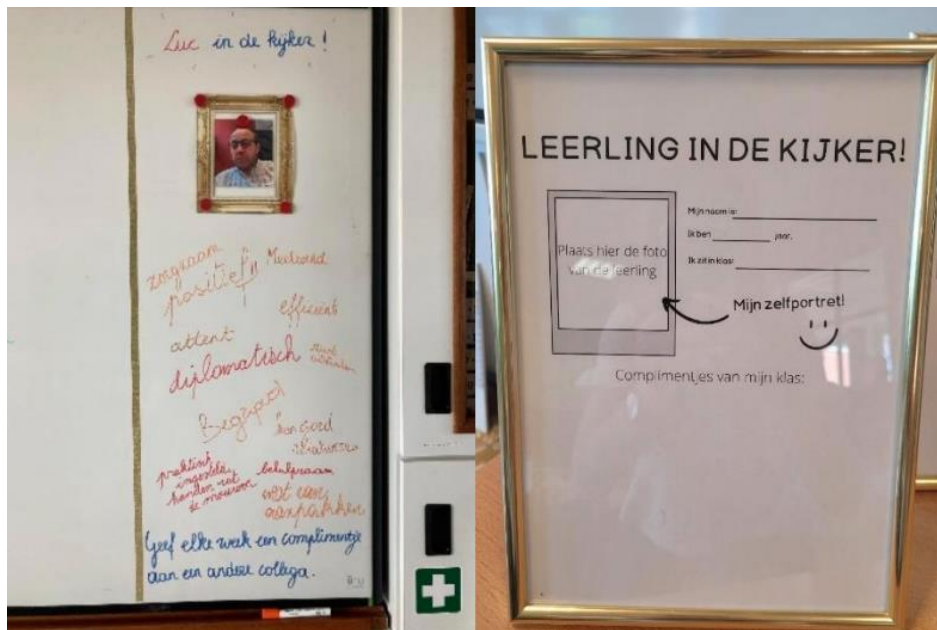 Luc in de kijker!
zorgzaam
"positief"
Meelevend
efficiënt
attent
diplomatisch
Begrijpend
kan goed
praktisch
ingesteld,
handen uit
de mouwen
behulpzaam
weet van
aanpakken
Geef elke week een complimentje
aan een andere collega.
LEERLING IN DE KIJKER!
Plaats hier de foto
van de leerling
Mijn naam is:
Ik ben jaar.
Ik zit in klas:
Mijn zelfportret!
Complimentjes van mijn klas: